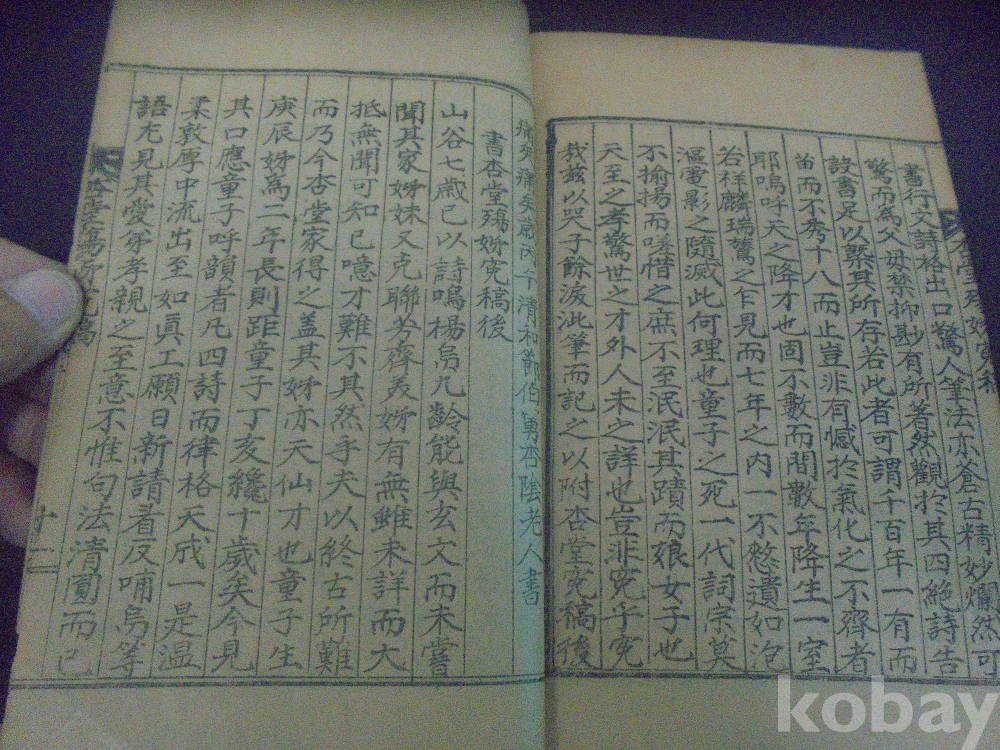 書行文詩格出口驚人筆法亦蒼古精妙爛然可
驚而為父母禁抑尠有所著然觀於其四絕詩告
設書足以槩其所存若此者可謂千百年一有而
苗而不秀十八而止豈非有憾於氣化之不齊者
耶嗚呼天之降才也固不數而間數年降生一室
若祥麟瑞鸞之乍見而七年之內一不憗遺如泡
漚電影之隨滅此何理也童子之死一代詞宗莫
不揄揚而嗟惜之庶不至泯其蹟而娘女子也
天至之孝驚世之才外人未之詳也豈非寃乎寃
哉玆以哭子餘淚泚筆而記之以附杏堂寃稿後
痛矣痛矣歲丙午清和節伯舅杏陰老人書
書杏堂殤姊寃稿後
山谷七歲已以詩鳴楊烏九齡能與玄文而未嘗
聞其家姊妹又克聯芳齊美姊有無雖未詳而大
抵無聞可知已噫才難不其然乎夫以終古所難
而乃今杏堂家得之盖其姊亦天仙才也童子生
庚辰姊爲二年長則距童子丁亥纔十歲矣今見
其口應童子呼韻者凡四詩而律格天成一是溫
柔敦厚中流出至如眞工願日新請看反哺烏等
語尤見其愛弟孝親之至意不惟句法清圓而已
杏堂殤姊寃稿
十二
kobay